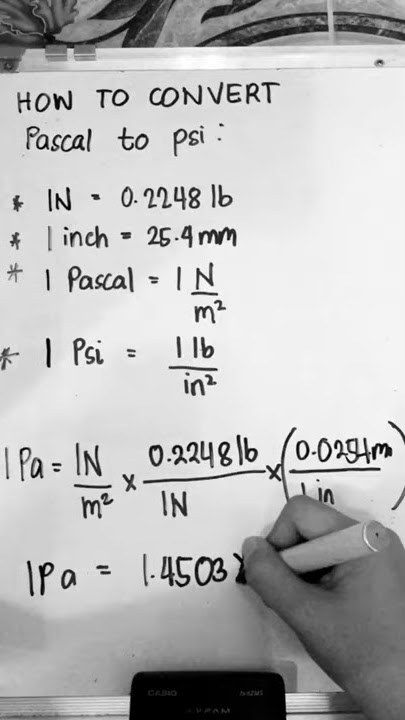 HOW TO CONVERT
Pascal to psi:
* 1N = 0.2248 lb
* 1 inch = 25.4 mm
* 1 Pascal = 1 N/m²
* 1 Psi = 1 lb/in²
1Pa = 1N/m² × 0.2248 lb/1N × (0.0254m/1 in)
1Pa = 1.4503 ×
CASIO